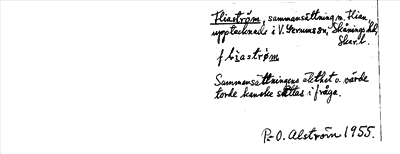 Fliaström, sammansättning m. flian,
upptecknad i V. Gerum s sn, Skånings hd,
Skar. l.
fli̇aström
Sammansättningens äkthet o. värde
torde kanske sättas i fråga.
P.-O. Alström 1955.